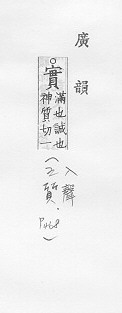 廣韻
。實
滿也誠也
神質切一
(入聲
五質.
P468)